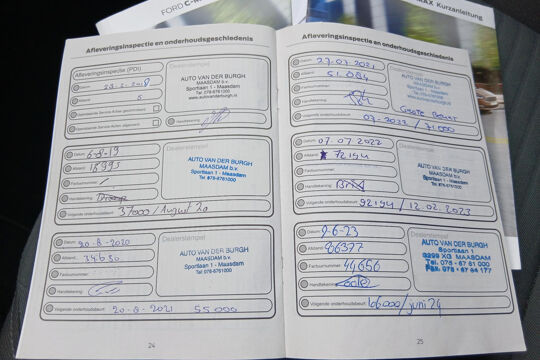 FORD C-M
MAX Kurzanleitung
Afleveringsinspectie en onderhoudsgeschiedenis
Afleveringsinspectie (PDI)
Datum:
Afstand:
AUTO VAN DER BURGH
MAASDAM b.v.
Sportlaan 1 - Maasdam
Tel. 078-6761000
www.autovanderburgh.nl
Handtekening:
Datum: 6-8-19
Afstand: 16995
Factuurnummer:
Handtekening:
Volgende onderhoudsbeurt: 37000 / August 20
Dealerstempel
AUTO VAN DER BURGH
MAASDAM b.v.
Sportlaan 1 - Maasdam
Tel. 078-6761000
Datum: 20-8-2020
Afstand: 34650
Factuurnummer:
Handtekening:
Volgende onderhoudsbeurt: 20-8-2021 55000
Dealerstempel
AUTO VAN DER BURGH
MAASDAM b.v.
Sportlaan 1 - Maasdam
Tel. 078-6761000
24
Afleveringsinspectie en onderhoudsgeschiedenis
Datum: 27.07.2021
Afstand: 51.084
Factuurnummer:
Handtekening:
Grote Beurt
Volgende onderhoudsbeurt: 07-2022 / 71.000
Datum: 07.07.2022
Afstand: 72194
Factuurnummer:
Handtekening:
Volgende onderhoudsbeurt: 92194 / 12.02.2023
Dealerstempel
AUTO VAN DER BURGH
MAASDAM b.v.
Sportlaan 1 - Maasdam
Tel. 078-6761000
Datum: 9-6-23
Afstand: 86377
Factuurnummer: 44656
Handtekening:
Volgende onderhoudsbeurt: 106000 / juni 24
Dealerstempel
AUTO VAN DER BURGH
MAASDAM b.v.
Sportlaan 1
3299 XG MAASDAM
Tel. 078 - 67 61 000
Fax. 078 - 67 64 177
25